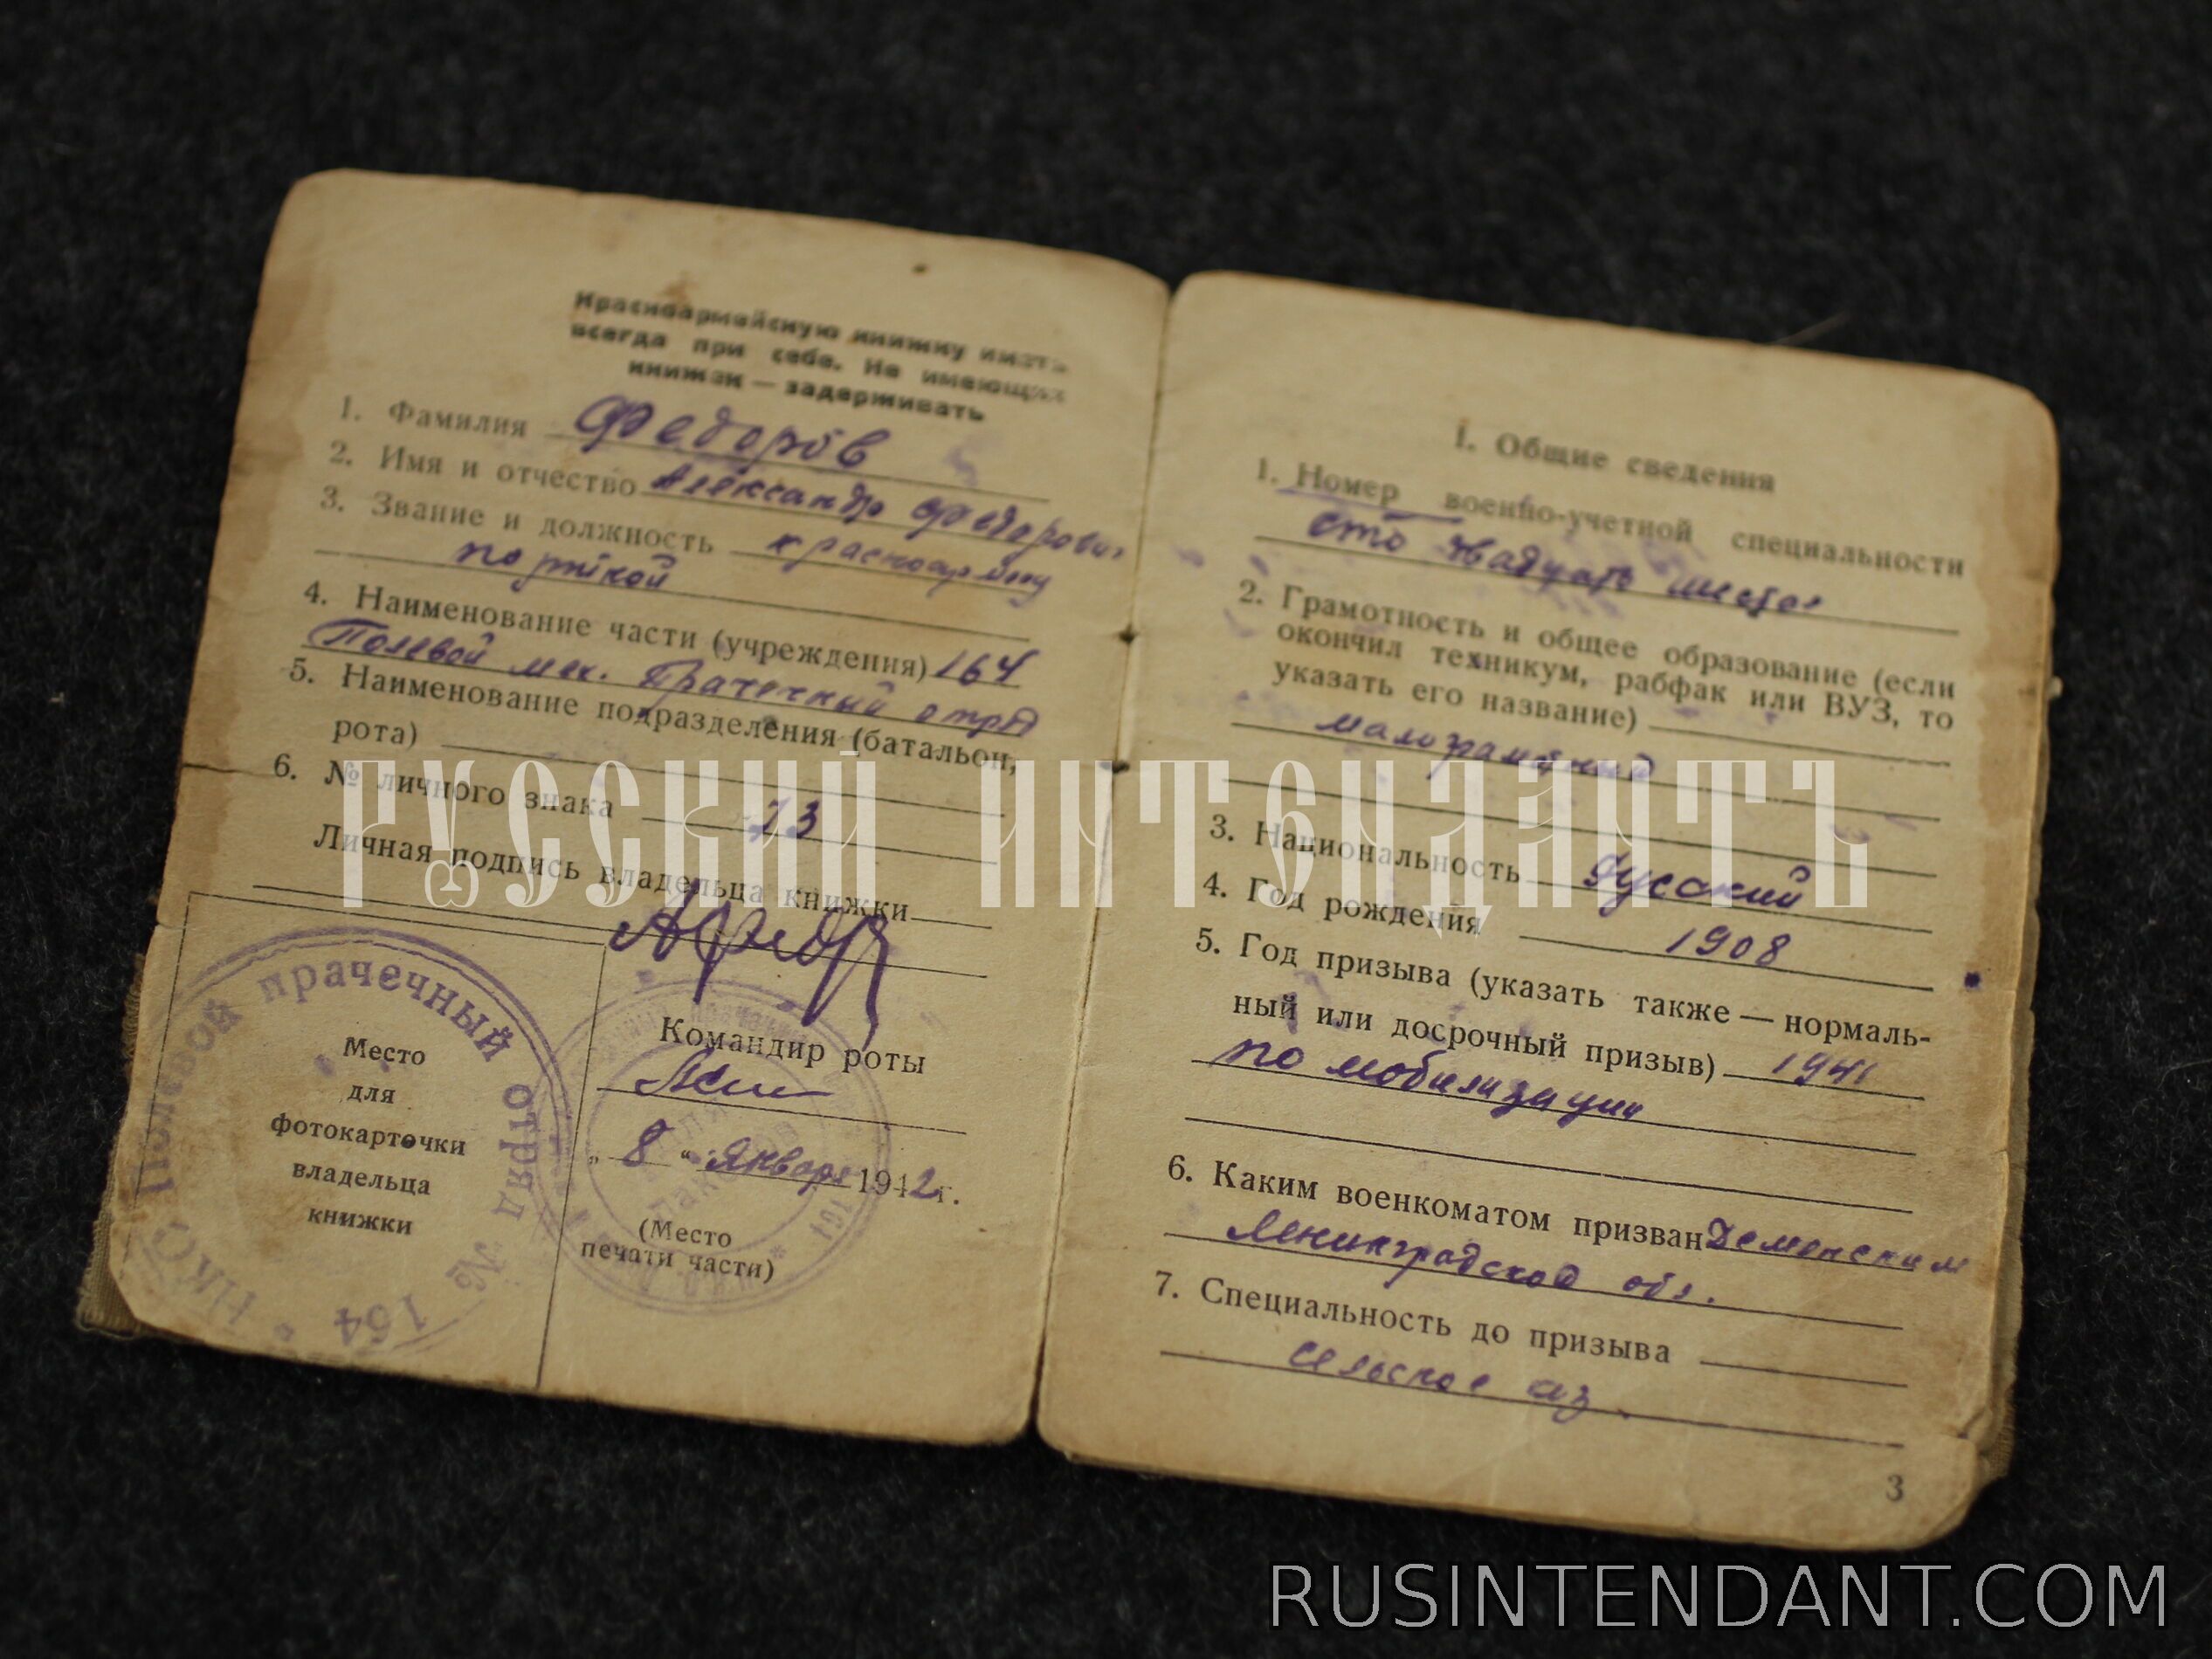 Красноармейскую книжку иметь
всегда при себе. Не имеющих
книжек — задерживать
1. Фамилия Федоров
2. Имя и отчество Александр Федорович
3. Звание и должность красноармеец
портной
4. Наименование части (учреждения) 164
Полевой мех. Прачечный отряд
5. Наименование подразделения (батальон,
рота)
6. № личного знака 13
Личная подпись владельца книжки
Место
для
фотокарточки
владельца
книжки
НКО Полевой прачечный отряд № 164
Командир роты
„ 8 “ января 1942 г.
(Место
печати части)
I. Общие сведения
1. Номер военно-учетной специальности
сто двадцать шесть
2. Грамотность и общее образование (если
окончил техникум, рабфак или ВУЗ, то
указать его название)
малограмотный
3. Национальность русский
4. Год рождения 1908
5. Год призыва (указать также — нормаль-
ный или досрочный призыв) 1941
по мобилизации
6. Каким военкоматом призван Демянским
Ленинградской обл.
7. Специальность до призыва
сельское хоз.
3
РУССКИЙ ИНТЕНДАНТЪ
RUSINTENDANT.COM